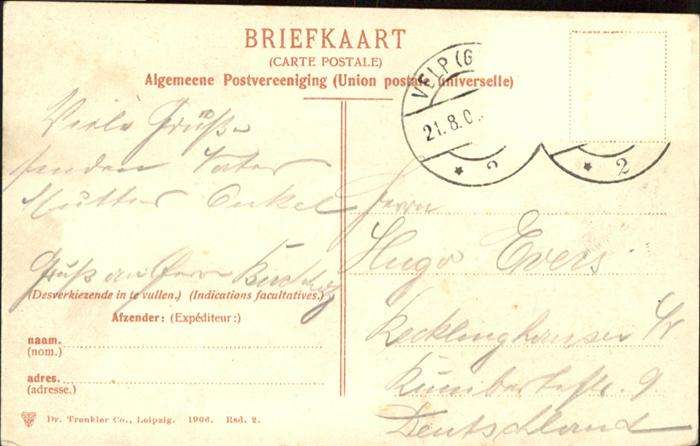 BRIEFKAART
(CARTE POSTALE)
Algemeene Postvereeniging (Union postale universelle)
VELP (G
21.8.0
2
2
Viele Grüße
senden Vater
Mutter Onkel
Gruß an Herrn
(Desverkiezende in te vullen.) (Indications facultatives.)
Afzender: (Expéditeur:)
naam.
(nom.)
adres.
(adresse.)
Dr. Trenkler Co., Leipzig. 1906. Rsd. 2.
Herrn
Hugo Evers
Recklinghausen i/W
9
Deutschland